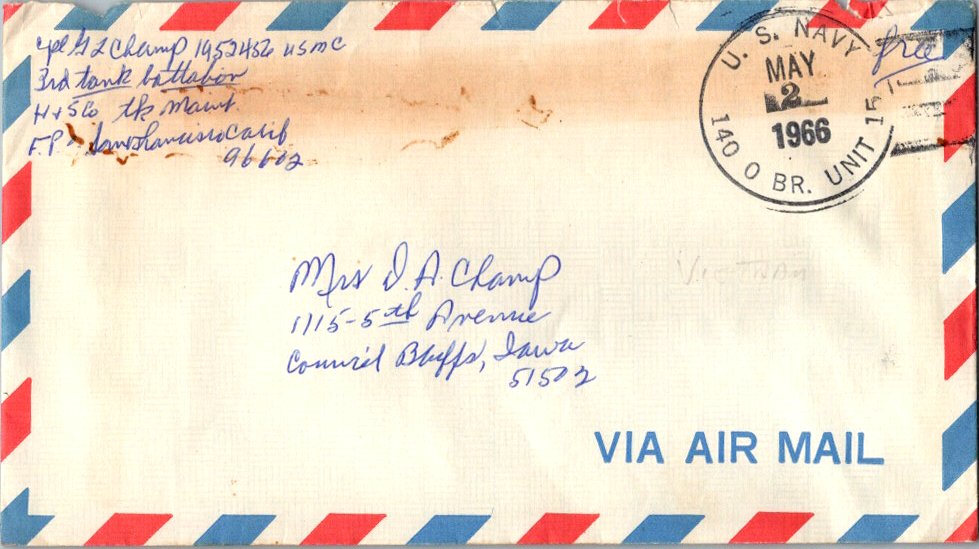 Cpl G L Champ 1952456 USMC
3rd tank battalion
H+S Co tk Maint.
F.P. San Francisco Calif
96602
U. S. NAVY
MAY
2
1966
14010 BR. UNIT 15
free
Mrs D. A. Champ
1115-5th Avenue
Council Bluffs, Iowa
51502
VIETNAM
VIA AIR MAIL